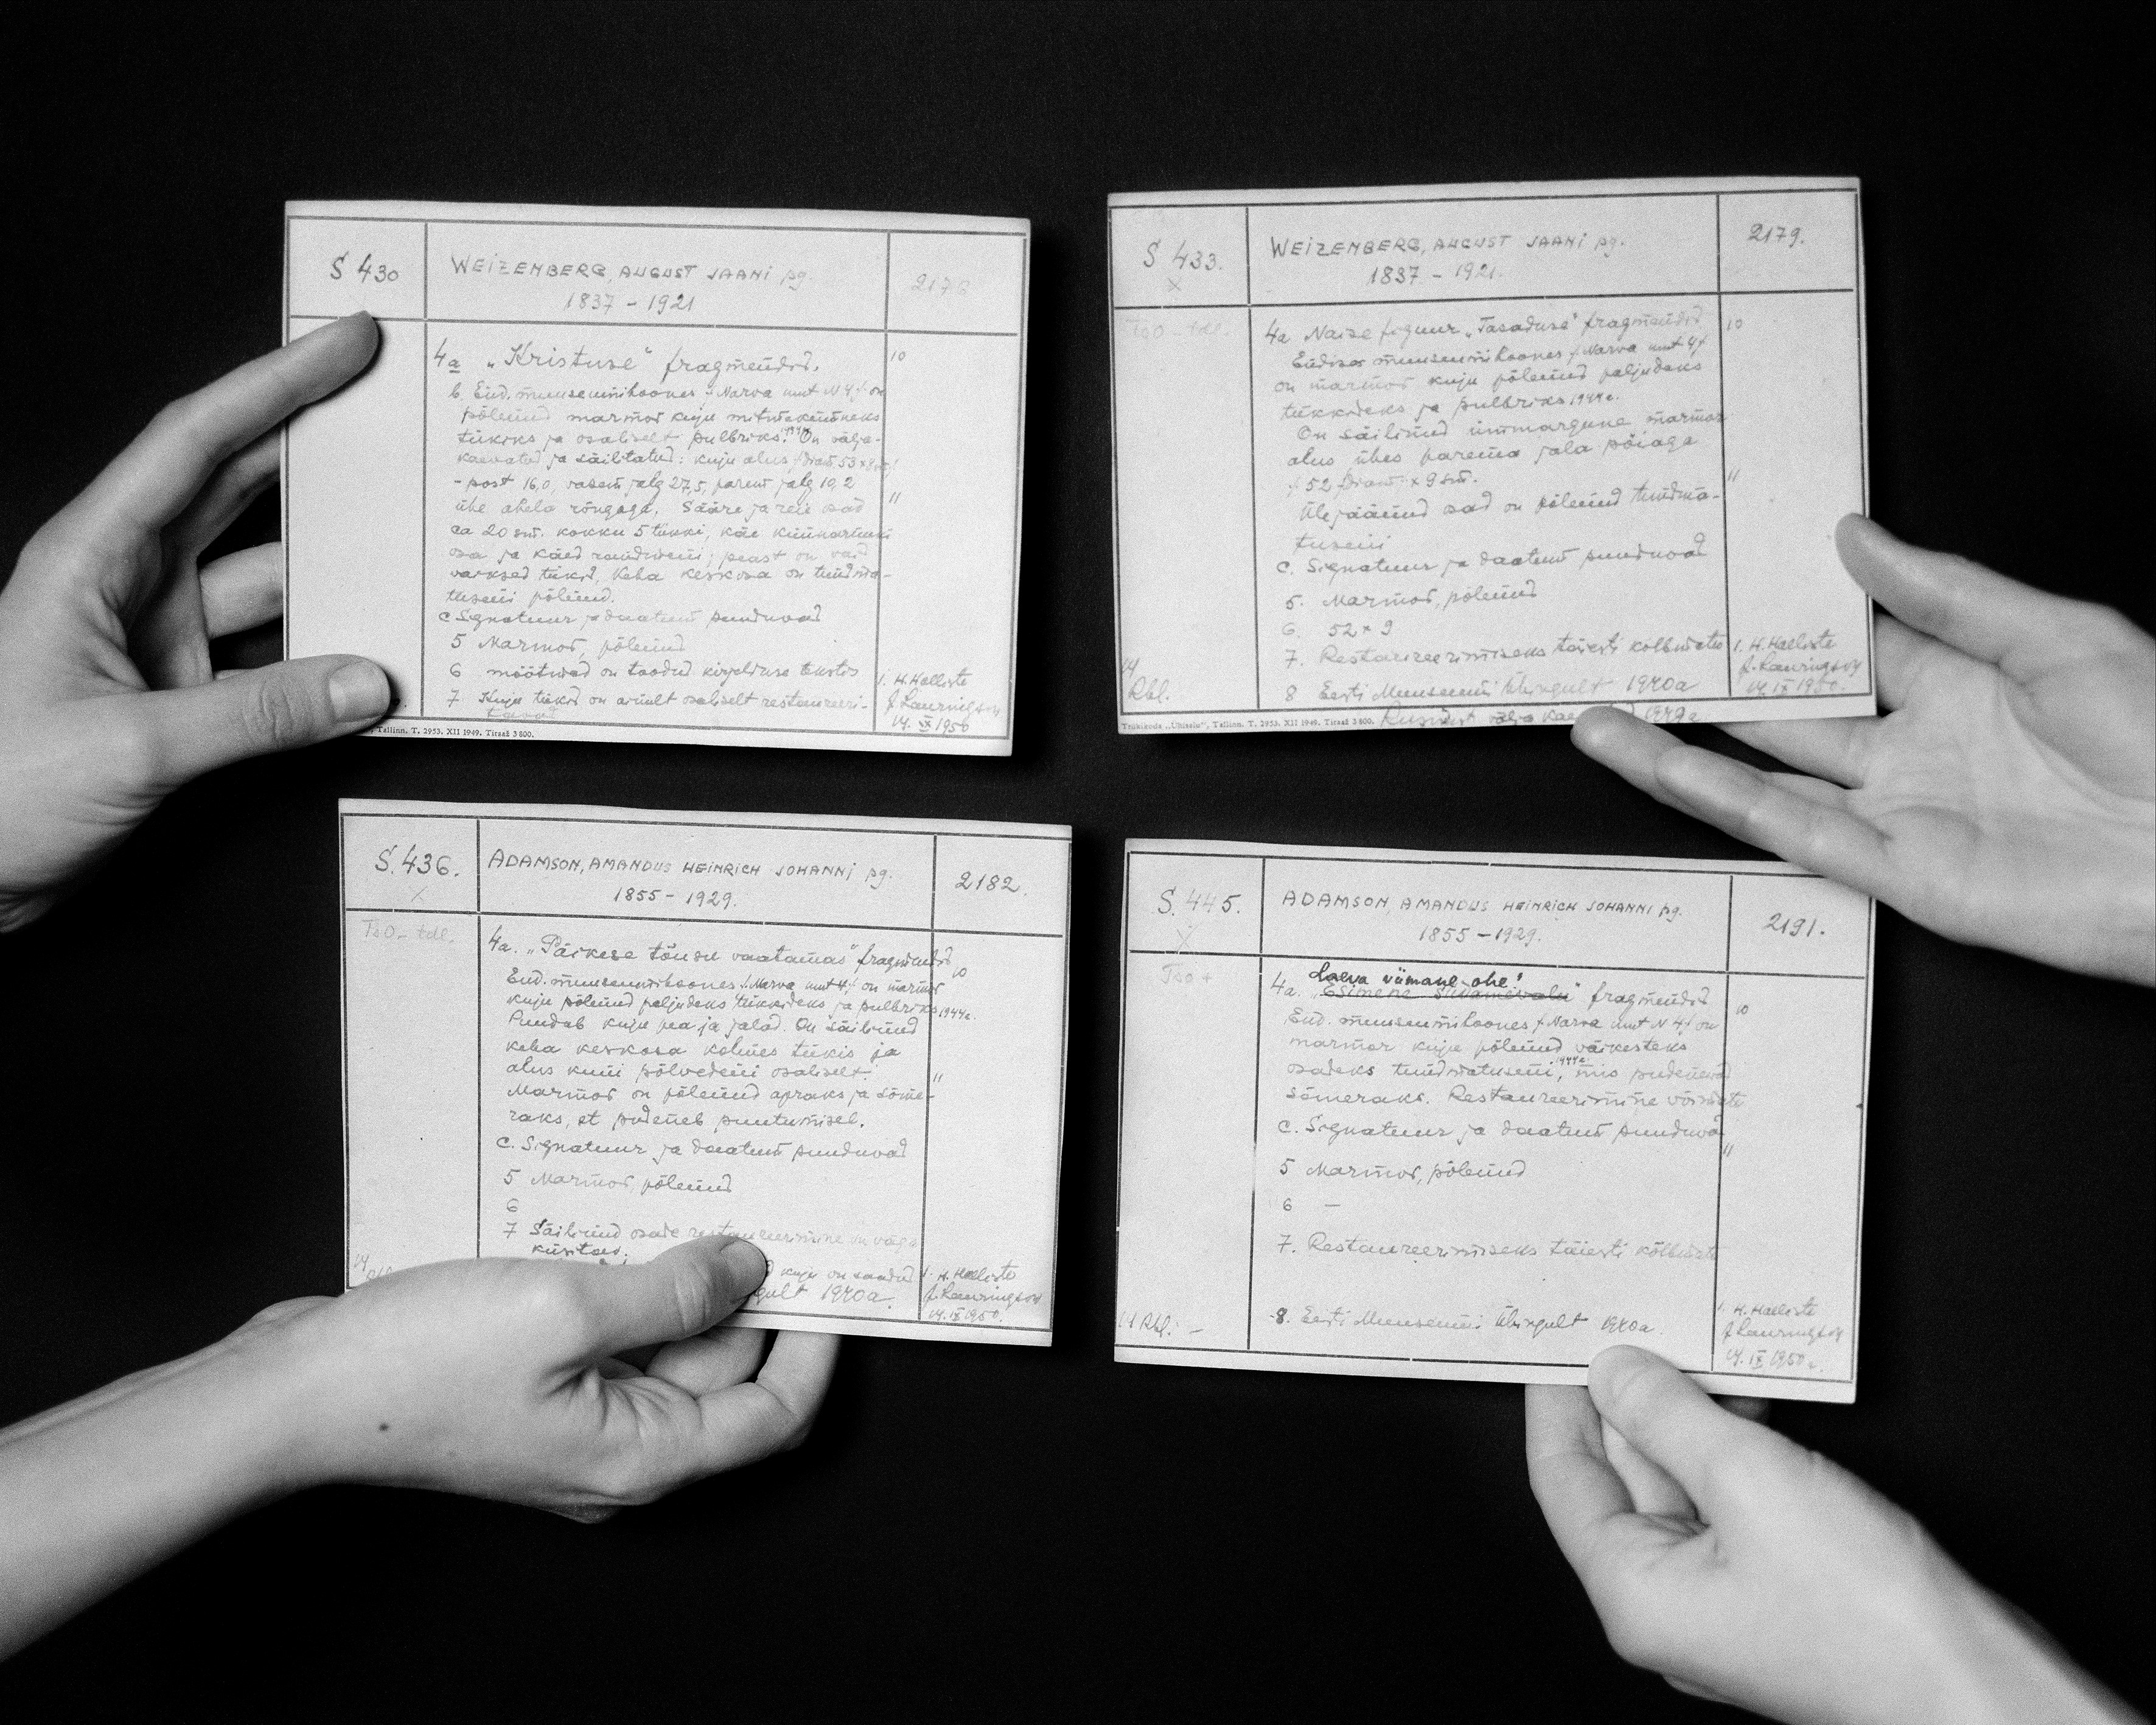 S 430
WEIZENBERG, AUGUST JAANI pg.
1837 - 1921
217
4a „Kristuse“ fragmendid.
10
b. End. muuseumihoones /Narva mnt N 4/ on
põlenud marmor kuju mitmekümneks
tükiks ja osaliselt pulbriks. 1944a. On välja-
kaevatud ja säilitatud: kuju alus /diam. 53 x 8
- post 16,0, vasem jalg 27,5, parem jalg 19,2
11
ühe ahela rõngaga. Sääre ja reie osad
ca 20 sm. kokku 5 tükki, käe küünarnuki
osa ja käed randmeni; peast on vaid
väiksed tükid, keha keskosa on tundma-
tuseni põlenud.
c Signatuur ja daatum puuduvad
5 Marmor, põlenud
6 mõõtmed on toodud kirjelduse tekstis
7 Kuju tükid on ainult osaliselt restaureeri-
tavad
1. H. Halliste
J. Lauringson
14. IX 1950
Tallinn. T. 2953. XII 1949. Tiraaž 3 800.
S 433.
X
WEIZENBERG, AUGUST JAANI pg.
1837 - 1921.
2179.
TsO - tdl.
4a Naise figuur „Tasaduse“ fragmendid
10
Endises muuseumihoones /Narva mnt 4/
on marmor kuju põlenud paljudeks
tükkideks ja pulbriks 1944a.
On säilinud ümmargune marmor
alus ühes parema jala pöiaga
/52 diam. x 9 sm.
11
Ülejäänud osad on põlenud tundma-
tuseni
c. Signatuur ja daatum puuduvad
5. Marmor, põlenud
6. 52 x 9
7. Restaureerimiseks täiesti kõlbmatu
8 Eesti Muuseumi Ühingult 1940a
Rusudest välja 194 a
14
Rbl.
1. H. Halliste
J. Lauringson
14. IX 1950.
Trükikoda „Ühiselu“, Tallinn. T. 2953. XII 1949. Tiraaž 3 800.
S. 436.
X
ADAMSON, AMANDUS HEINRICH JOHANNI pg.
1855 - 1929.
2182.
TsO - tdl.
4a. „Päikese tõusu vaatamas“ fragmendid
10
End. muuseumihoones /Narva mnt 4/ on marmor
kuju põlenud paljudeks tükkideks ja pulbriks 1944a.
Puudub kuju pea ja jalad. On säilinud
keha keskosa kolmes tükis ja
alus kuni põlvedeni osaliselt.
11
Marmor on põlenud apraks ja sõme-
raks, et pudeneb puutumisel.
c. Signatuur ja daatum puuduvad
5 Marmor, põlenud
6
7 Säilinud osade restaureerimine on väga
küsitav.
kuju on saadud
gult 1940a.
14
1. H. Halliste
J. Lauringson
14. IX 1950.
S. 445.
X
ADAMSON, AMANDUS HEINRICH JOHANNI pg.
1855 - 1929.
2191.
TsO +
Laeva viimane ohe“
4a. „Esimene südamevalu“ fragmendid
10
End. muuseumihoones /Narva mnt N 4/ on
marmor kuju põlenud väikesteks
osadeks tundmatuseni, 1944a. mis pudenevad
sõmeraks. Restaureerimine võimatu
c. Signatuur ja daatum puuduva
11
5 Marmor, põlenud
6 —
7. Restaureerimiseks täiesti kõlbmatu
8. Eesti Muuseumi Ühingult 1940a.
14 Rbl. -
1. H. Halliste
J. Lauringson
14. IX 1950a.